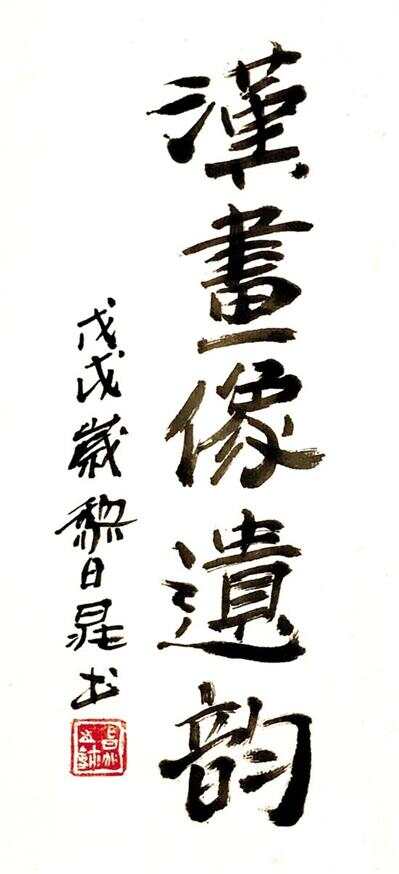 漢畫像遺韵
戊戌歲黎日晁书